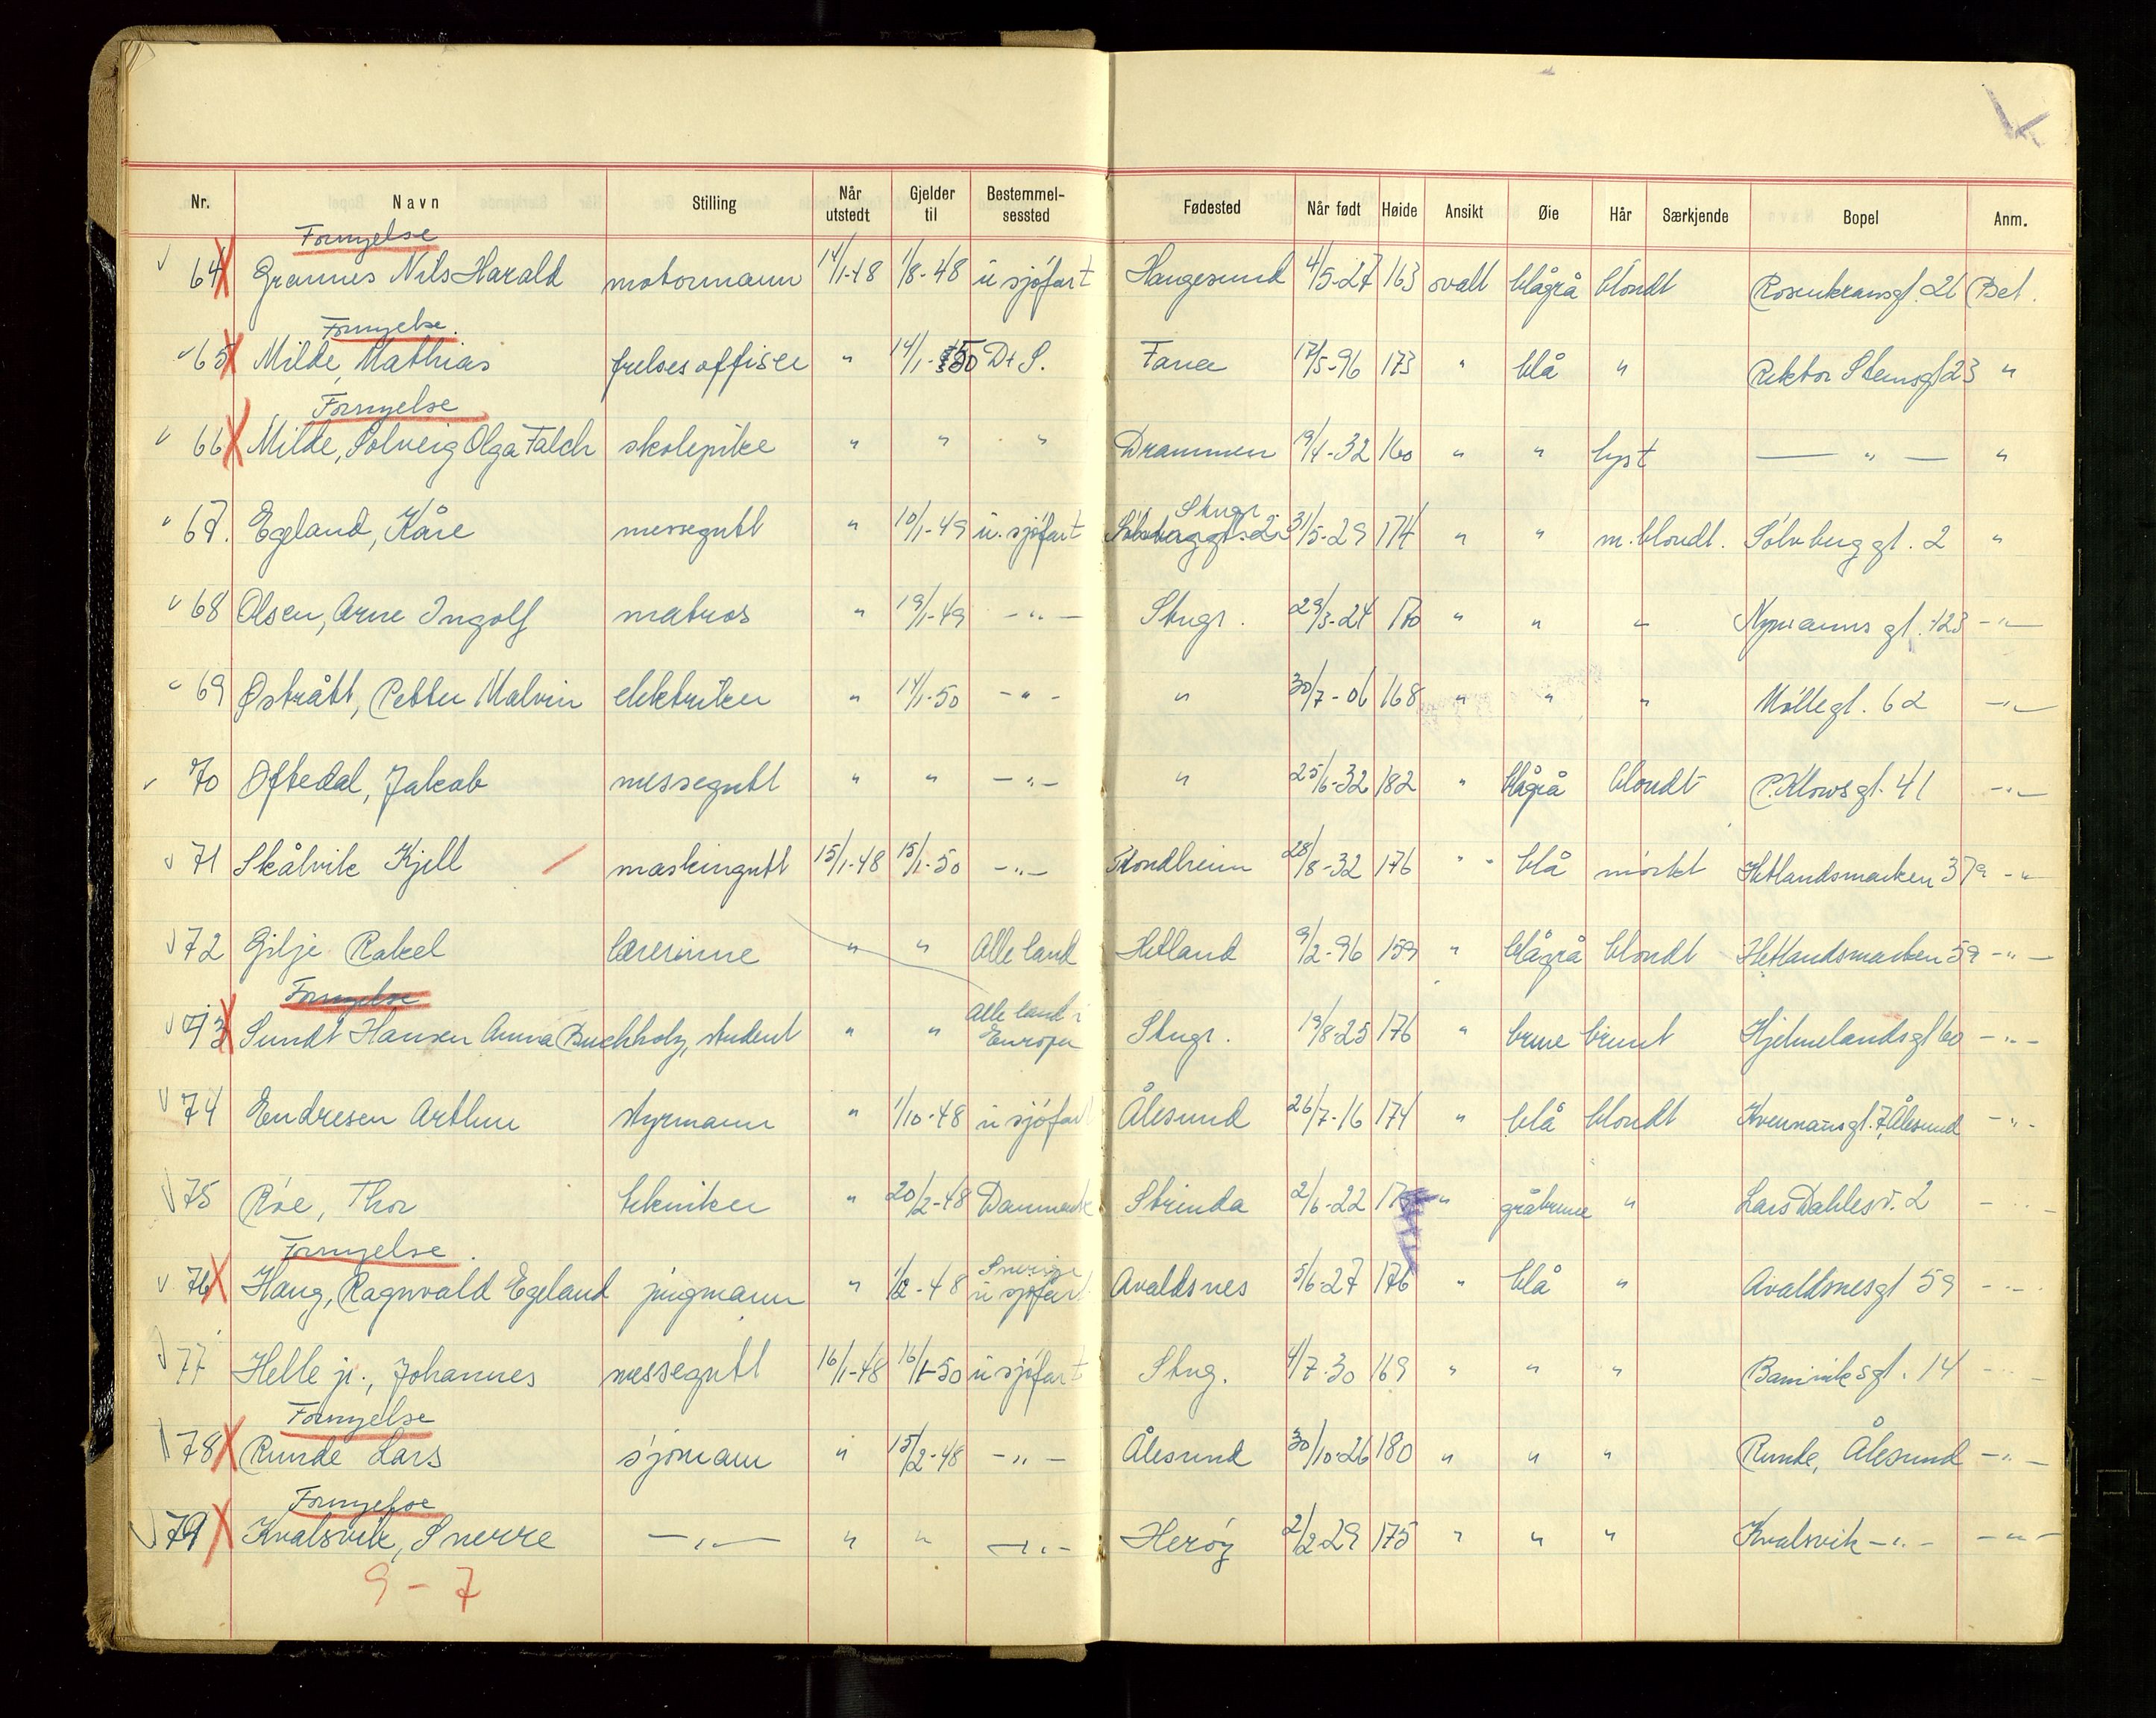 Nr. Navn Stilling Når utstedt Gjelder til Bestemmel-sessted Fødested Når født Høide Ansikt Øie Hår Særkjende Bopel Anm.
Fornyelse
64 Grannes Nils Harald motormann 14/1-48 1/8-48 u sjöfart Haugesund 4/5-27 163 ovalt blågrå blondt Rosenkransgt. 26 Bet.
Fornyelse.
65 Milde, Mathias frelsesoffiser " 14/1-50 D+S. Fana 17/5-96 173 " blå " Rektor Steensgt 23 "
Fornyelse
66 Milde, Solveig Olga Falch skolepike " " " Drammen 19/4-32 160 " " lyst — " — "
Stngr
67. Egeland, Kåre messegutt " 10/1-49 u. sjöfart Sölvberggt. 2 31/5-29 174 " " m. blondt. Sölvberggt. 2 "
68 Olsen, Arne Ingolf matros " 19/1-49 -"- Stngr. 29/3-24 170 " " " Nymannsgt. 123 -"-
69 Østrått, Petter Malvin elektriker " 14/1-50 -"- " 30/7-06 168 " " " Möllegt. 62 -"-
70 Oftedal, Jakob messegutt " " -"- " 25/6-32 182 " blågrå blondt P. Klowsgt. 41 -"-
71 Skålvik Kjell maskingutt 15/1-48 15/1-50 -"- Trondheim 28/8-32 176 " blå mörkt Hetlandsmarken 379 -"-
72 Gilje Rakel lærerinne " " Alle land Hetland 9/2-96 159 " blågrå blondt Hetlandsmarken 59 -"-
Fornyelse
Alle land i
73 Sundt Hansen Anna Buchholz, student " " Europa Stngr. 19/8-25 176 " brune brunt Hjelmelandsgt 60 -"-
74 Endresen Arthur styrmann " 1/10-48 u sjöfart Ålesund 26/7-16 174 " blå blondt Kvennansgt. 7, Ålesund -"-
75 Röe, Thor tekniker " 20/2-48 Danmark Strinda 2/6-22 " gråbrune " Lars Dahlesv. 2 -"-
Fornyelse.
Sverige
76 Haug, Ragnvald Egeland jungmann " 1/2-48 u sjöfart Avaldsnes 5/6-27 176 " blå " Avaldsnesgt 59 -"-
77 Helle jr., Johannes messegutt 16/1-48 16/1-50 u sjöfart Stng. 4/7-30 169 " " " Baneviksgt. 14 -"-
Fornyelse
78 Runde Lars sjömann " 15/2-48 -"- Ålesund 30/10-26 180 " " " Runde, Ålesund -"-
Fornyelse
79 Kvalsvik, Sverre -"- " " -"- Heröy 2/2-29 175 " " " Kvalsvik -"- -"-
9-7